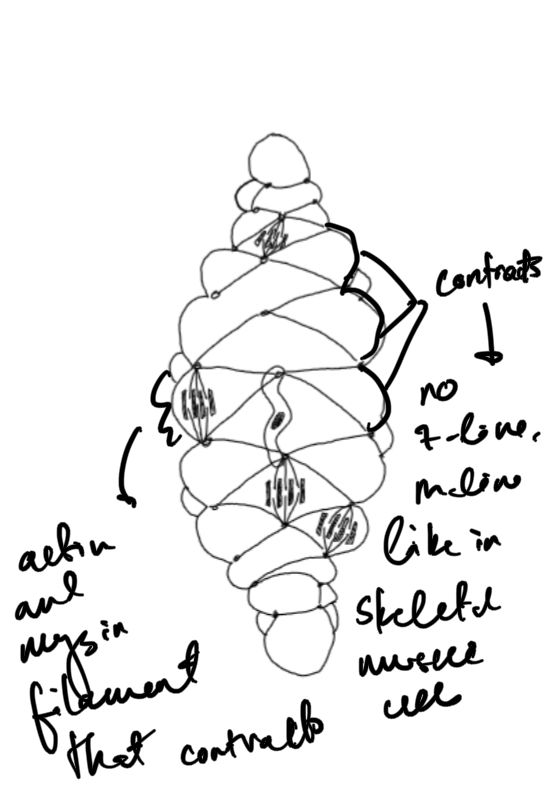 contracts
no
z-line,
m line
like in
skeletal
muscle
cell
actin
and
myosin
filament
that contracts